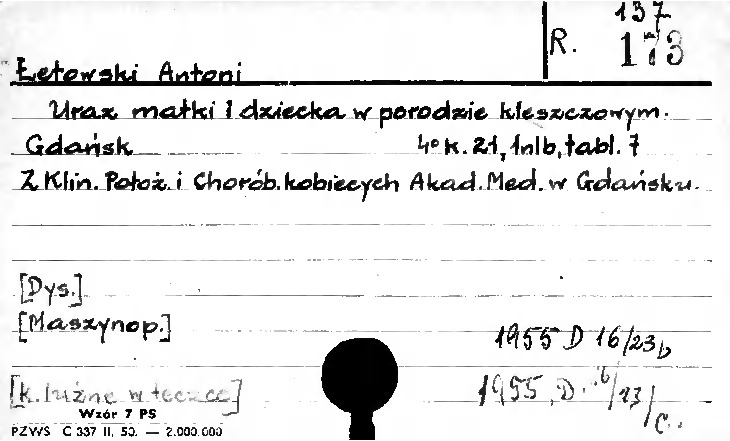 137
R. 173
Łętowski Antoni
Uraz matki i dziecka w porodzie kleszczowym.
Gdańsk 4° k. 21, 1nlb, tabl. 7
Z Klin. Położ. i Chorób. kobiecych Akad. Med. w Gdańsku.
[Dys.]
[Maszynop.]
1955 D 16/23b
[k. luźne w teczce] 1955, D. 16/23/c.
Wzór 7 PS
PZWS C 337 II. 50. — 2.000.000